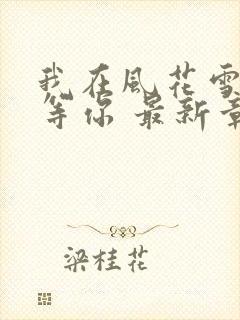 我在風花雪
等你 最新章
梁桂花